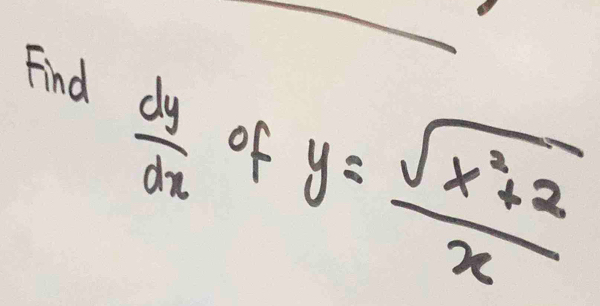 Find dy/dx of y = √(x²+2)/x